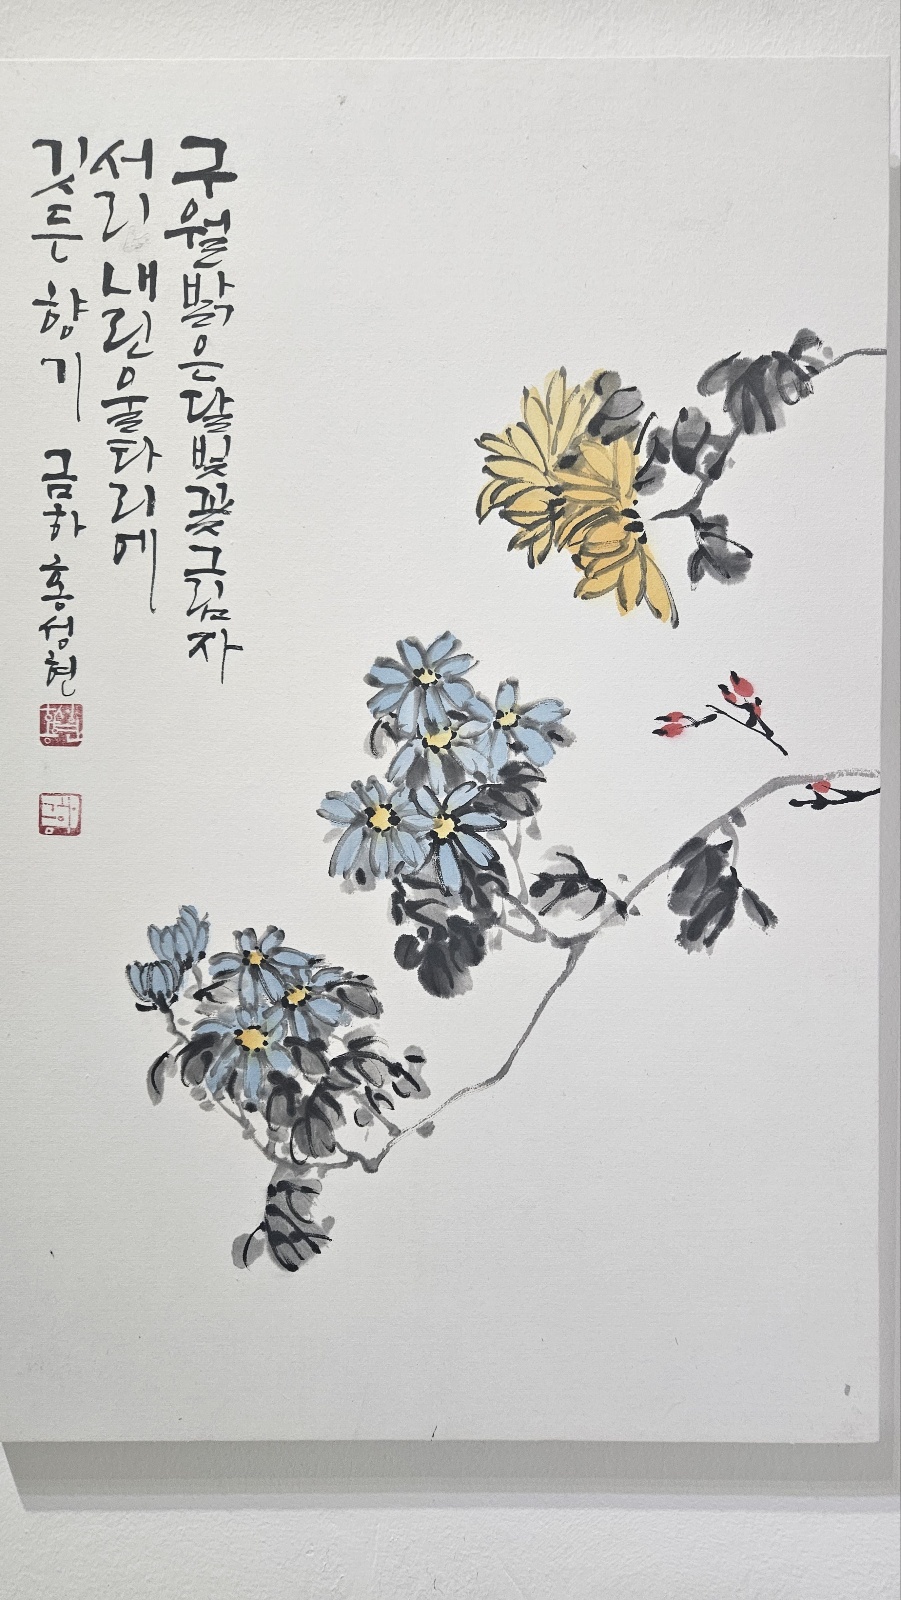 구월 밝은 달빛 꽃그림자
서리 내린 울타리에
깃든 향기 금하 홍성현